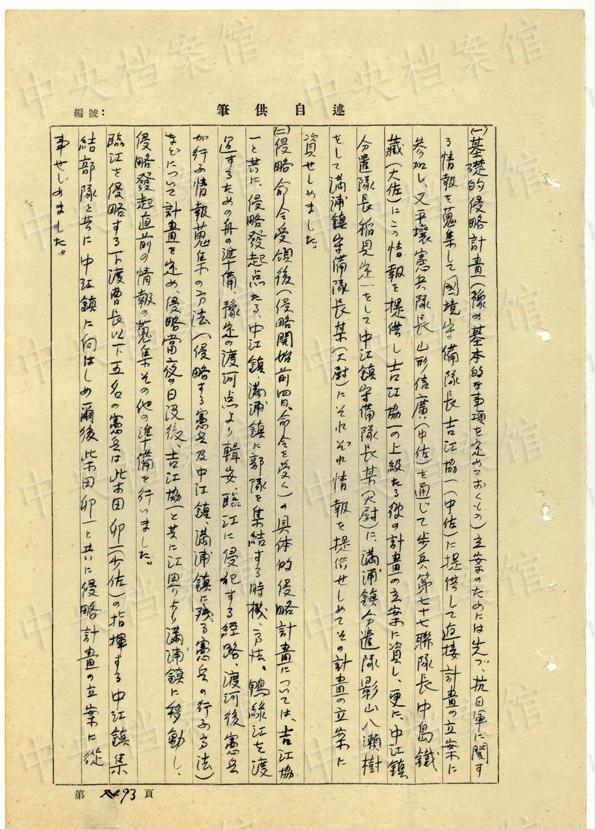 編號：
筆供自述
(一)基礎的侵略計畫(豫め基本的な事項を定めておくもの)立案のためには先づ、抗日軍に関す
る情報を蒐集して国境守備隊長吉江協一(中佐)に提供して直接計画の立案に
参加し、又平壤憲兵隊長山形信廣(中佐)を通じて歩兵第七十七聯隊長中島鐵
藏(大佐)にこの情報を提供し吉江協一の上級たる彼の計画の立案に資し、更に、中江鎮
分遣隊長稲見 一をして中江鎮守備隊長某(大尉)に、満浦鎮分遣隊影山八瀬樹
をして満浦鎮守備隊長某(大尉)にそれぞれ情報を提供せしめてその計畫の立案に
資せしめました。
(二)侵略命令受領後(侵略開始前四日、命令を受く)の具体的侵略計畫については、吉江協
一と共に、侵略發起点たる、中江鎮、満浦鎮に部隊を集結する時機、方法、鴨緑江を渡
河するための舟の準備、豫定の渡河点より輯安、臨江に侵犯する経路、渡河後憲兵
が行ふ情報蒐集の方法(侵略する憲兵及中江鎮、満浦鎮に残る憲兵の行ふ方法)
などについて計畫を定め、侵略当夜の日没後、吉江協一と共に江界より満浦鎮に移動し、
侵略發起直前の情報の蒐集その他の準備を行いました。
臨江を侵略する一下渡曹長以下五名の憲兵は柴田卯一(少佐)の指揮する中江鎮集
結部隊と共に中江鎮に向はしめ爾後柴田卯一と共に侵略計畫の立案に從
事せしめました。
第 93 頁
中央档案馆